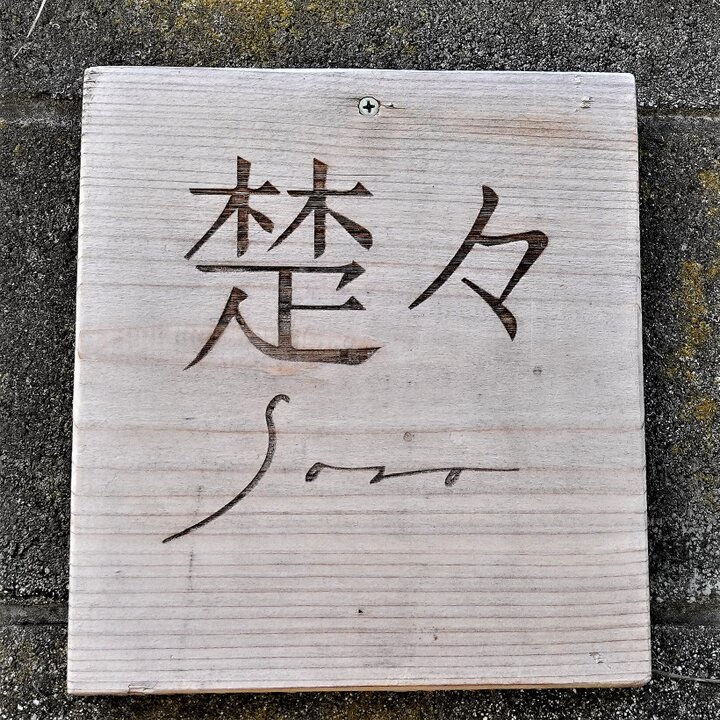 楚々
Soso